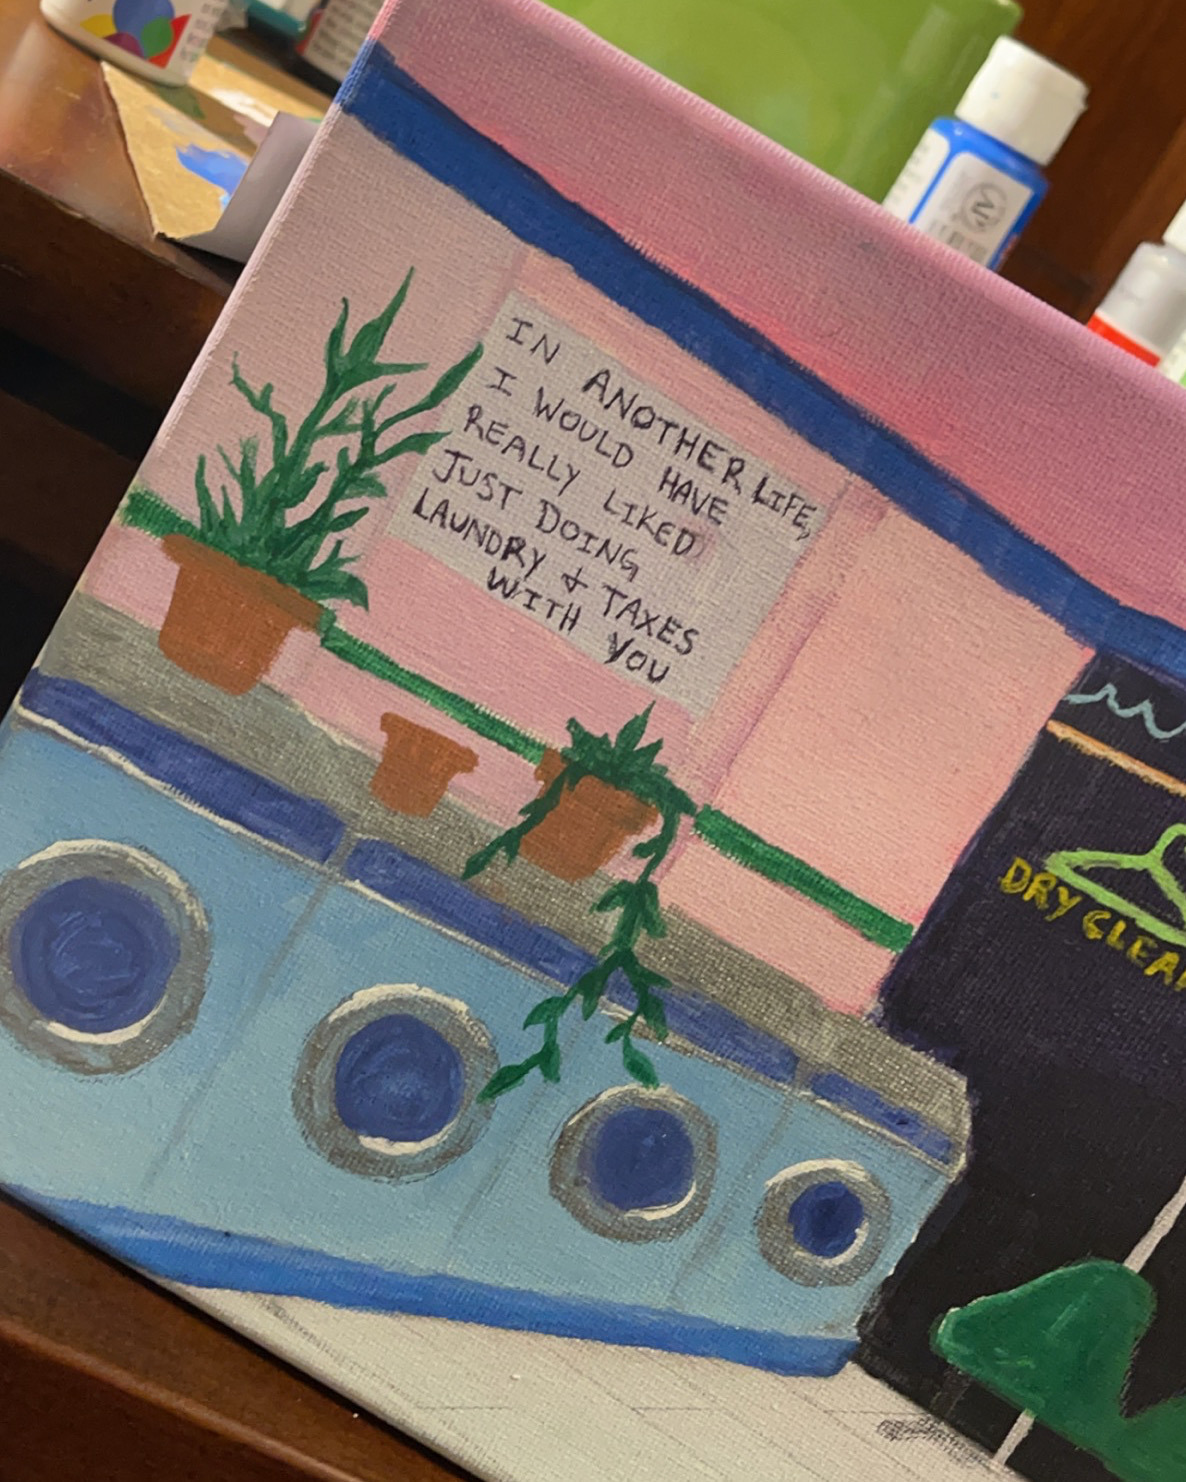 IN ANOTHER LIFE,
I WOULD HAVE
REALLY LIKED
JUST DOING
LAUNDRY & TAXES
WITH YOU
DRY CLEA